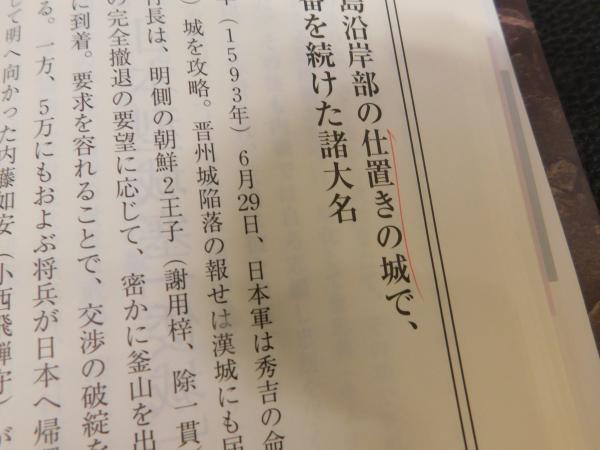 島沿岸部の仕置きの城で、
番を続けた諸大名
年(1593年)6月29日、日本軍は秀吉の命
)城を攻略。晋州城陥落の報せは漢城にも届
行長は、明側の朝鮮2王子(謝用梓、除一貫
の完全撤退の要望に応じて、密かに釜山を出
に到着。要求を容れることで、交渉の破綻を
る。一方、5万にもおよぶ将兵が日本へ帰
して明へ向かった内藤如安(小西飛弾守)が